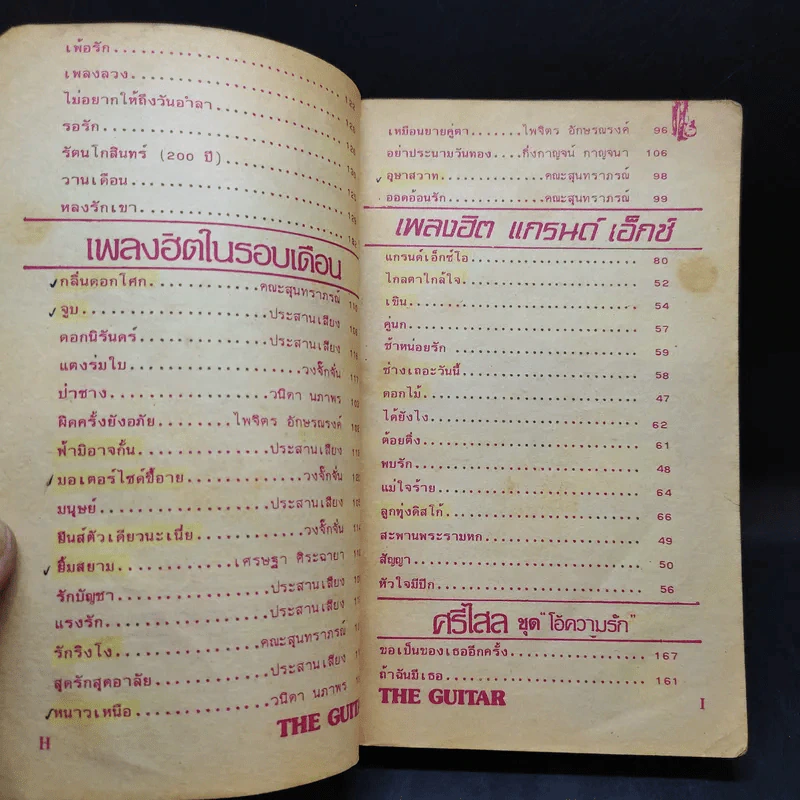 เพ้อรัก
เพลงลวง
ไม่อยากให้ถึงวันอำลา
รอรัก
รัตนโกสินทร์ (200 ปี)
วานเดือน
หลงรักเขา
เพลงฮิตในรอบเดือน
กลิ่นดอกโศก..............คณะสุนทราภรณ์
จูบ..............ประสานเสียง
ดอกนิรันดร์..............ประสานเสียง
แตงร่มใบ..............วงจั๊กจั่น
ป่าซาง..............วนิดา นภาพร
ผิดครั้งยังอภัย........ไพจิตร อักษรณรงค์
ฟ้ามิอาจกั้น..............ประสานเสียง
มอเตอร์ไซค์ขี้อาย..............วงจั๊กจั่น
มนุษย์..............ประสานเสียง
ยีนส์ตัวเดียวนะเนี่ย..............วงจั๊กจั่น
ยิ้มสยาม..............เศรษฐา ศิระฉายา
รักบัญชา..............ประสานเสียง
แรงรัก..............ประสานเสียง
รักริงโง..............คณะสุนทราภรณ์
สุดรักสุดอาลัย..............ประสานเสียง
หนาวเหนือ..............วนิดา นภาพร
THE GUITA
H
เหยือนยายคู่ตา.......ไพจิตร อักษรณรงค์ 96
อย่าประนามวันทอง..กิ่งกาญจน์ กาญจนา 106
อุษาสวาท..............คณะสุนทราภรณ์ 98
ออดอ้อนรัก..............คณะสุนทราภรณ์ 99
เพลงฮิต แกรนด์ เอ็กซ์
แกรนด์เอ็กซ์โอ..............80
ไกลตาใกล้ใจ..............52
เขิน..............54
คู่นก..............57
ช้ำหน่อยรัก..............59
ช่างเถอะวันนี้..............58
ดอกไม้..............47
ได้ยังไง..............62
ต้อยติ่ง..............61
พบรัก..............48
แม่ใจร้าย..............64
ลูกทุ่งดิสโก้..............66
สะพานพระรามหก..............49
สัญญา..............50
หัวใจมีปีก..............56
ศรีไสล ชุด "โอ้ความรัก"
ขอเป็นของเธออีกครั้ง..............167
ถ้าฉันมีเธอ..............161
THE GUITAR
I